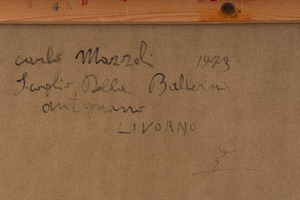 48
Carlo Mazzoli 1973
Scoglio Della Ballerina
Antignano
LIVORNO